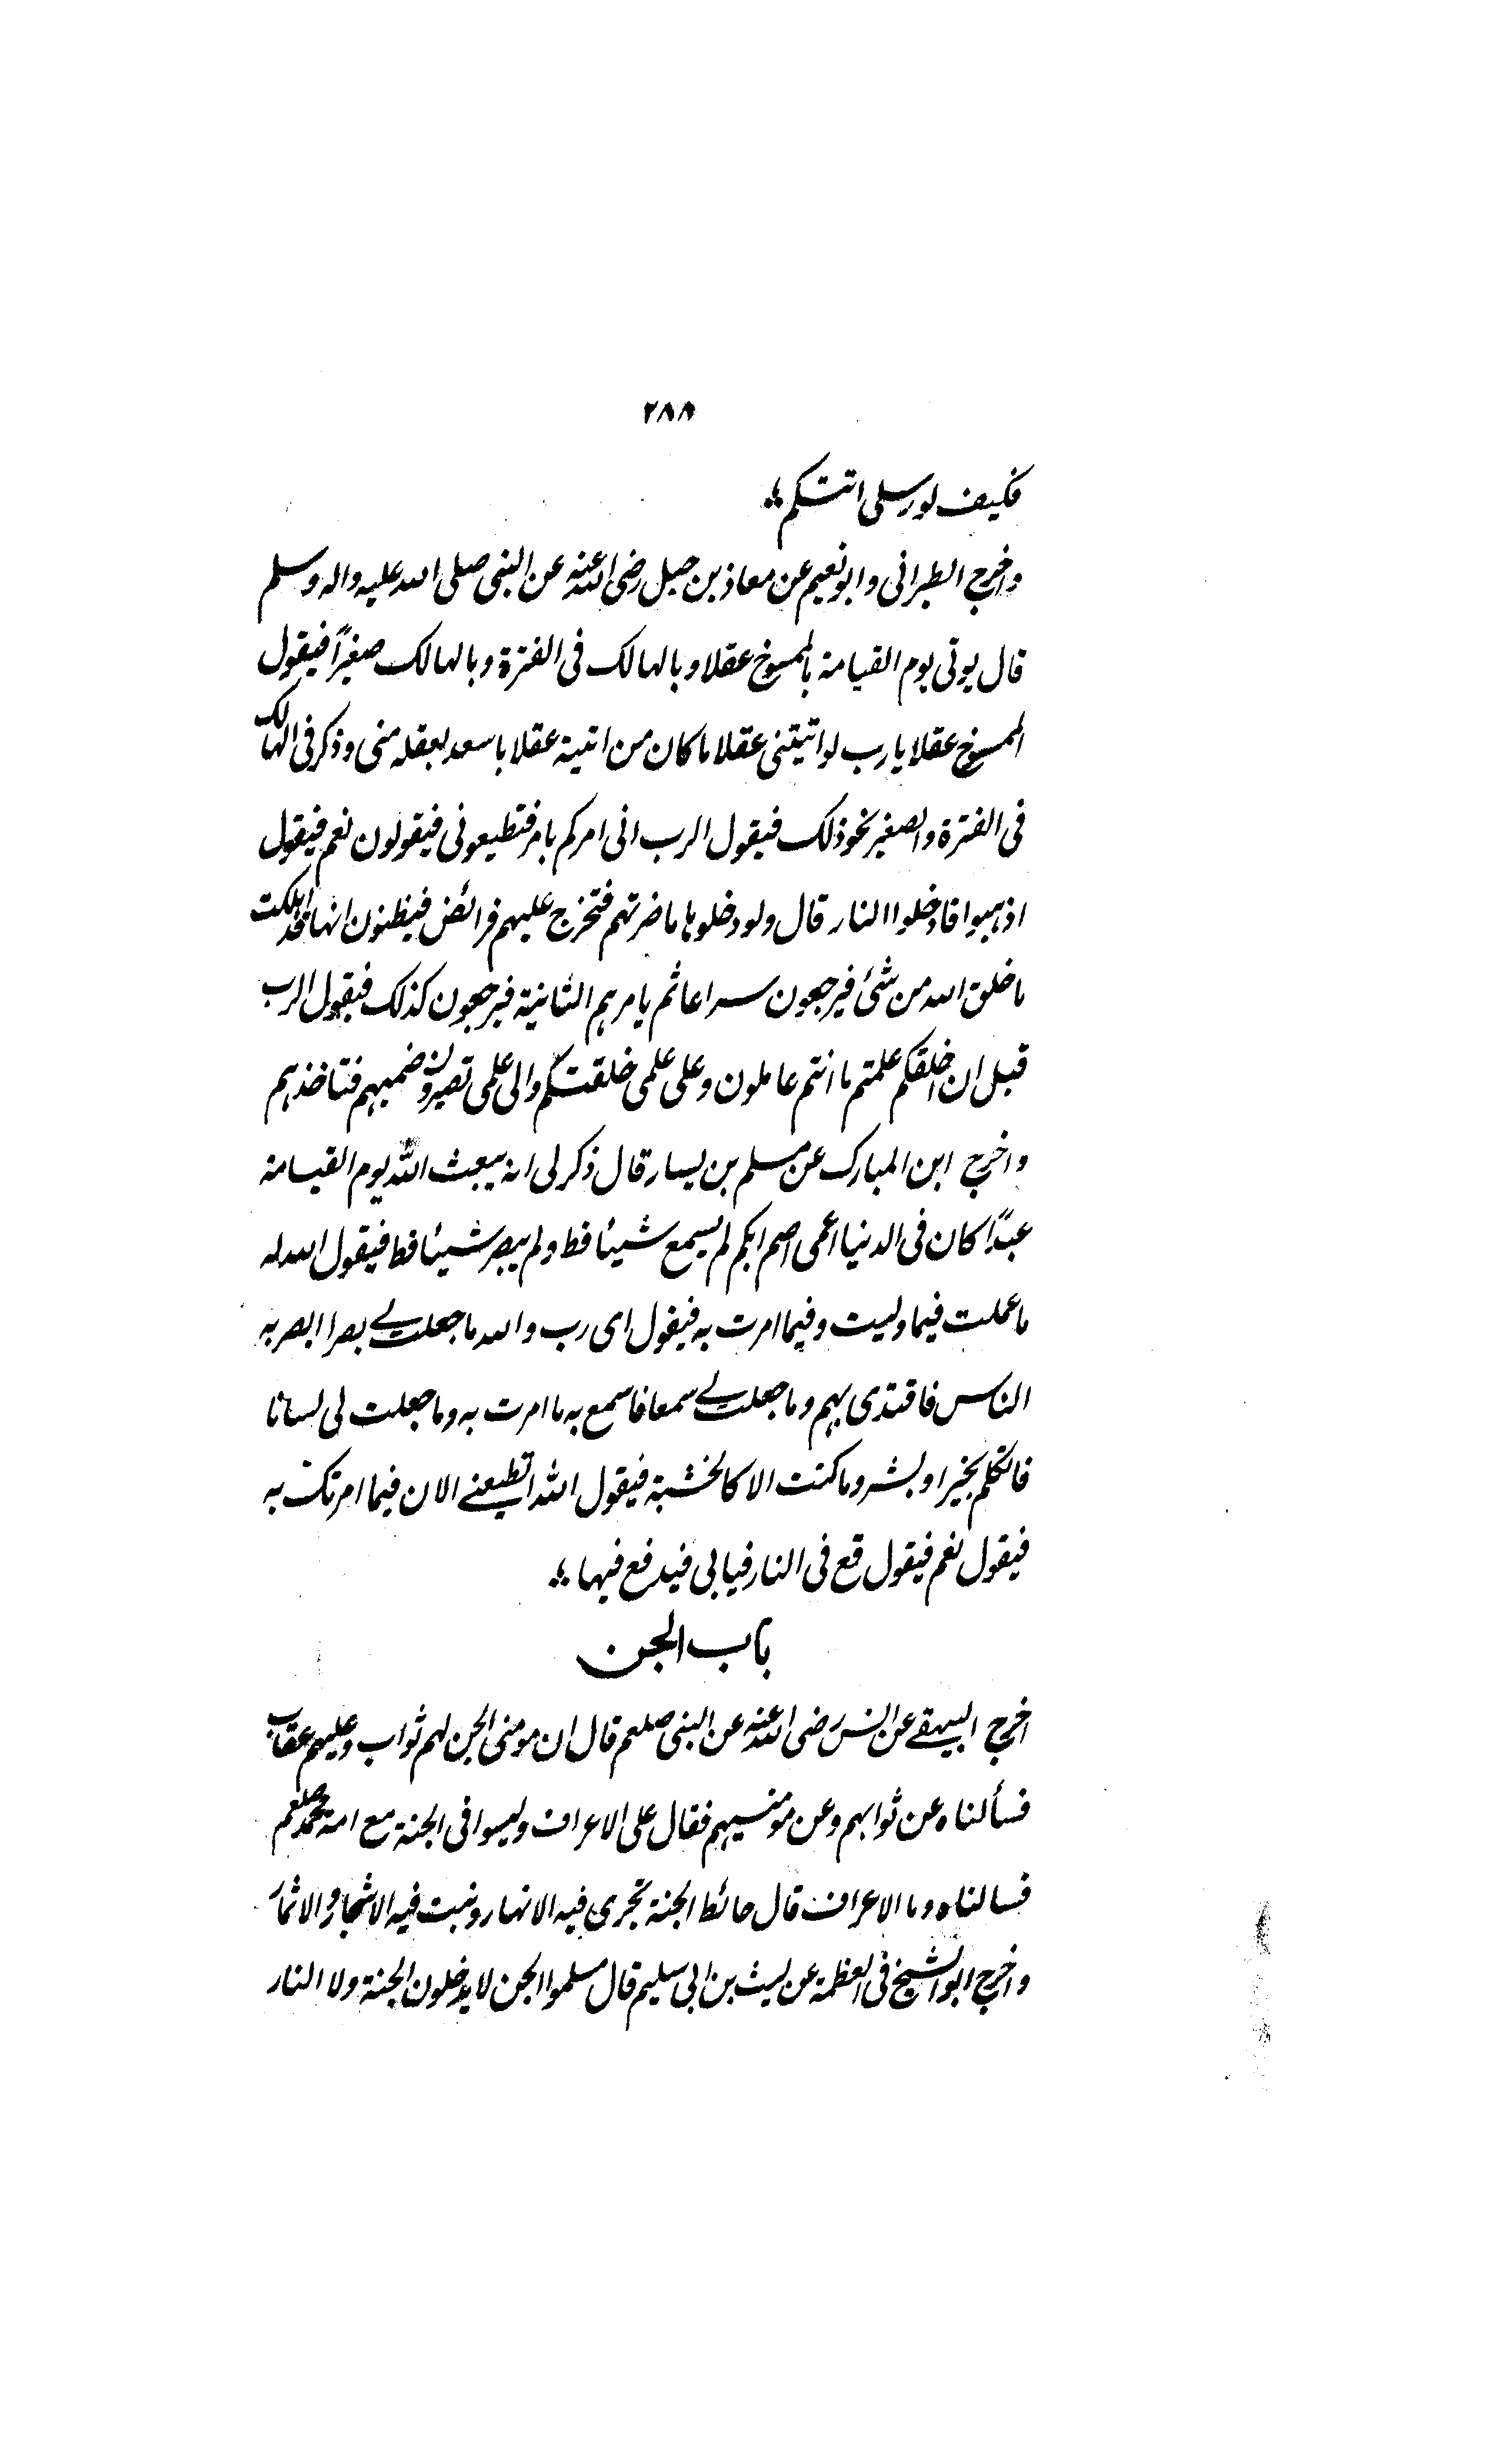 ٢٨٨
فكيف لو رسلى اتتكم
واخرج الطبرانى وابو نعيم عن معاذ بن جبل رضى الله عنه عن النبى صلى الله عليه واله وسلم
قال يوتى يوم القيامة بالممسوخ عقلا وبالهالك فى الفترة وبالهالك صغيراً فيقول
الممسوخ عقلا يارب لو اتيتنى عقلا ما كان من اتيته عقلا باسعد بعقله منى وذكر فى الهالك
فى الفترة والصغير نحو ذلك فيقول الرب انى امركم بامر فتطيعونى فيقولون نعم فيقول
اذهبوا فادخلوا النار قال ولو دخلوها ما ضرتهم فتخرج عليهم فرائض فيظنون انها قد اهلكت
ما خلق الله من شئ فيرجعون سراعا ثم يامرهم الثانية فيرجعون كذلك فيقول الرب
قبل ان اخلقكم علمتم ما انتم عاملون وعلى علمى خلقتكم والى علمى تصيرون ضميهم فتاخذهم
واخرج ابن المبارك عن مسلم بن يسار قال ذكر لى انه يبعث الله يوم القيامة
عبدًا كان فى الدنيا اعمى اصم ابكم لم يسمع شيئا قط ولم يبصر شيئا قط فيقول الله له
ما عملت فيما وليت وفيما امرت به فيقول اى رب والله ما جعلت لے بصرا ابصر به
الناس فاقتدى بهم وما جعلت لے سمعا فاسمع به ما امرت به وما جعلت لى لسانا
فاتكلم بخير او بشر وما كنت الا كالخشبة فيقول الله اتطيعنے الان فيما امرتك به
فيقول نعم فيقول قع فى النار فيابى فيدفع فيها
باب الجن
اخرج البيهقے عن انس رضى الله عنه عن النبى صلعم قال ان مومنى الجن لهم ثواب وعليهم عقاب
فسألناه عن ثوابهم وعن مومنيهم فقال على الاعراف وليسوا فى الجنة مع امة محمد صلعم
فسالناه وما الاعراف قال حائط الجنة تجرى فيه الانهار ونبت فيه الاشجار والاثمار
واخرج ابو الشيخ فى العظمة عن ليث بن ابى سليم قال مسلموا الجن لا يدخلون الجنة ولا النار